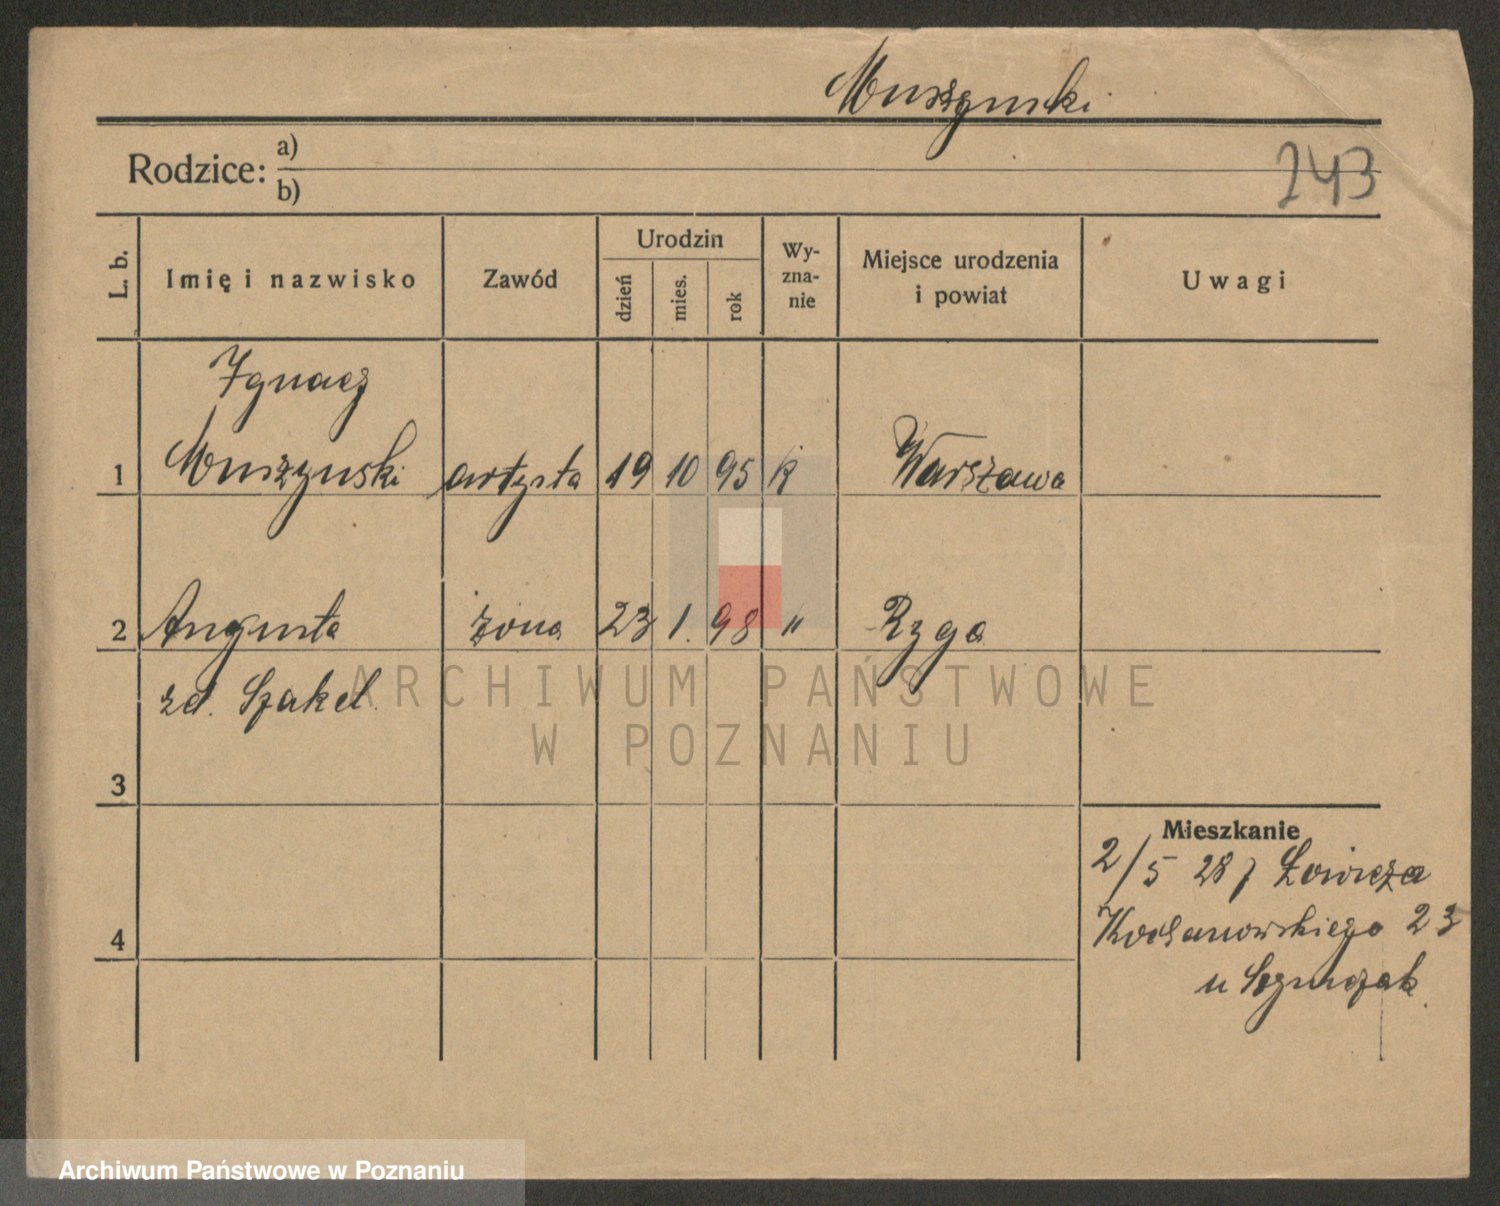 Muszynski
Rodzice: a)
b)
243
L. b.
Imię i nazwisko
Zawód
Urodzin
dzień
mies.
rok
Wy-
zna-
nie
Miejsce urodzenia
i powiat
Uwagi
Ignacz
1 Muszynski artysta 19 10 95 k Warszawa
2 Augusta żona 23 1. 98 " Ryga
zd. Szakel.
ARCHIWUM PAŃSTWOWE
W POZNANIU
3
Mieszkanie
2/5 28 z Łowicza
4
Kochanowskiego 23
u Szymczak
Archiwum Państwowe w Poznaniu